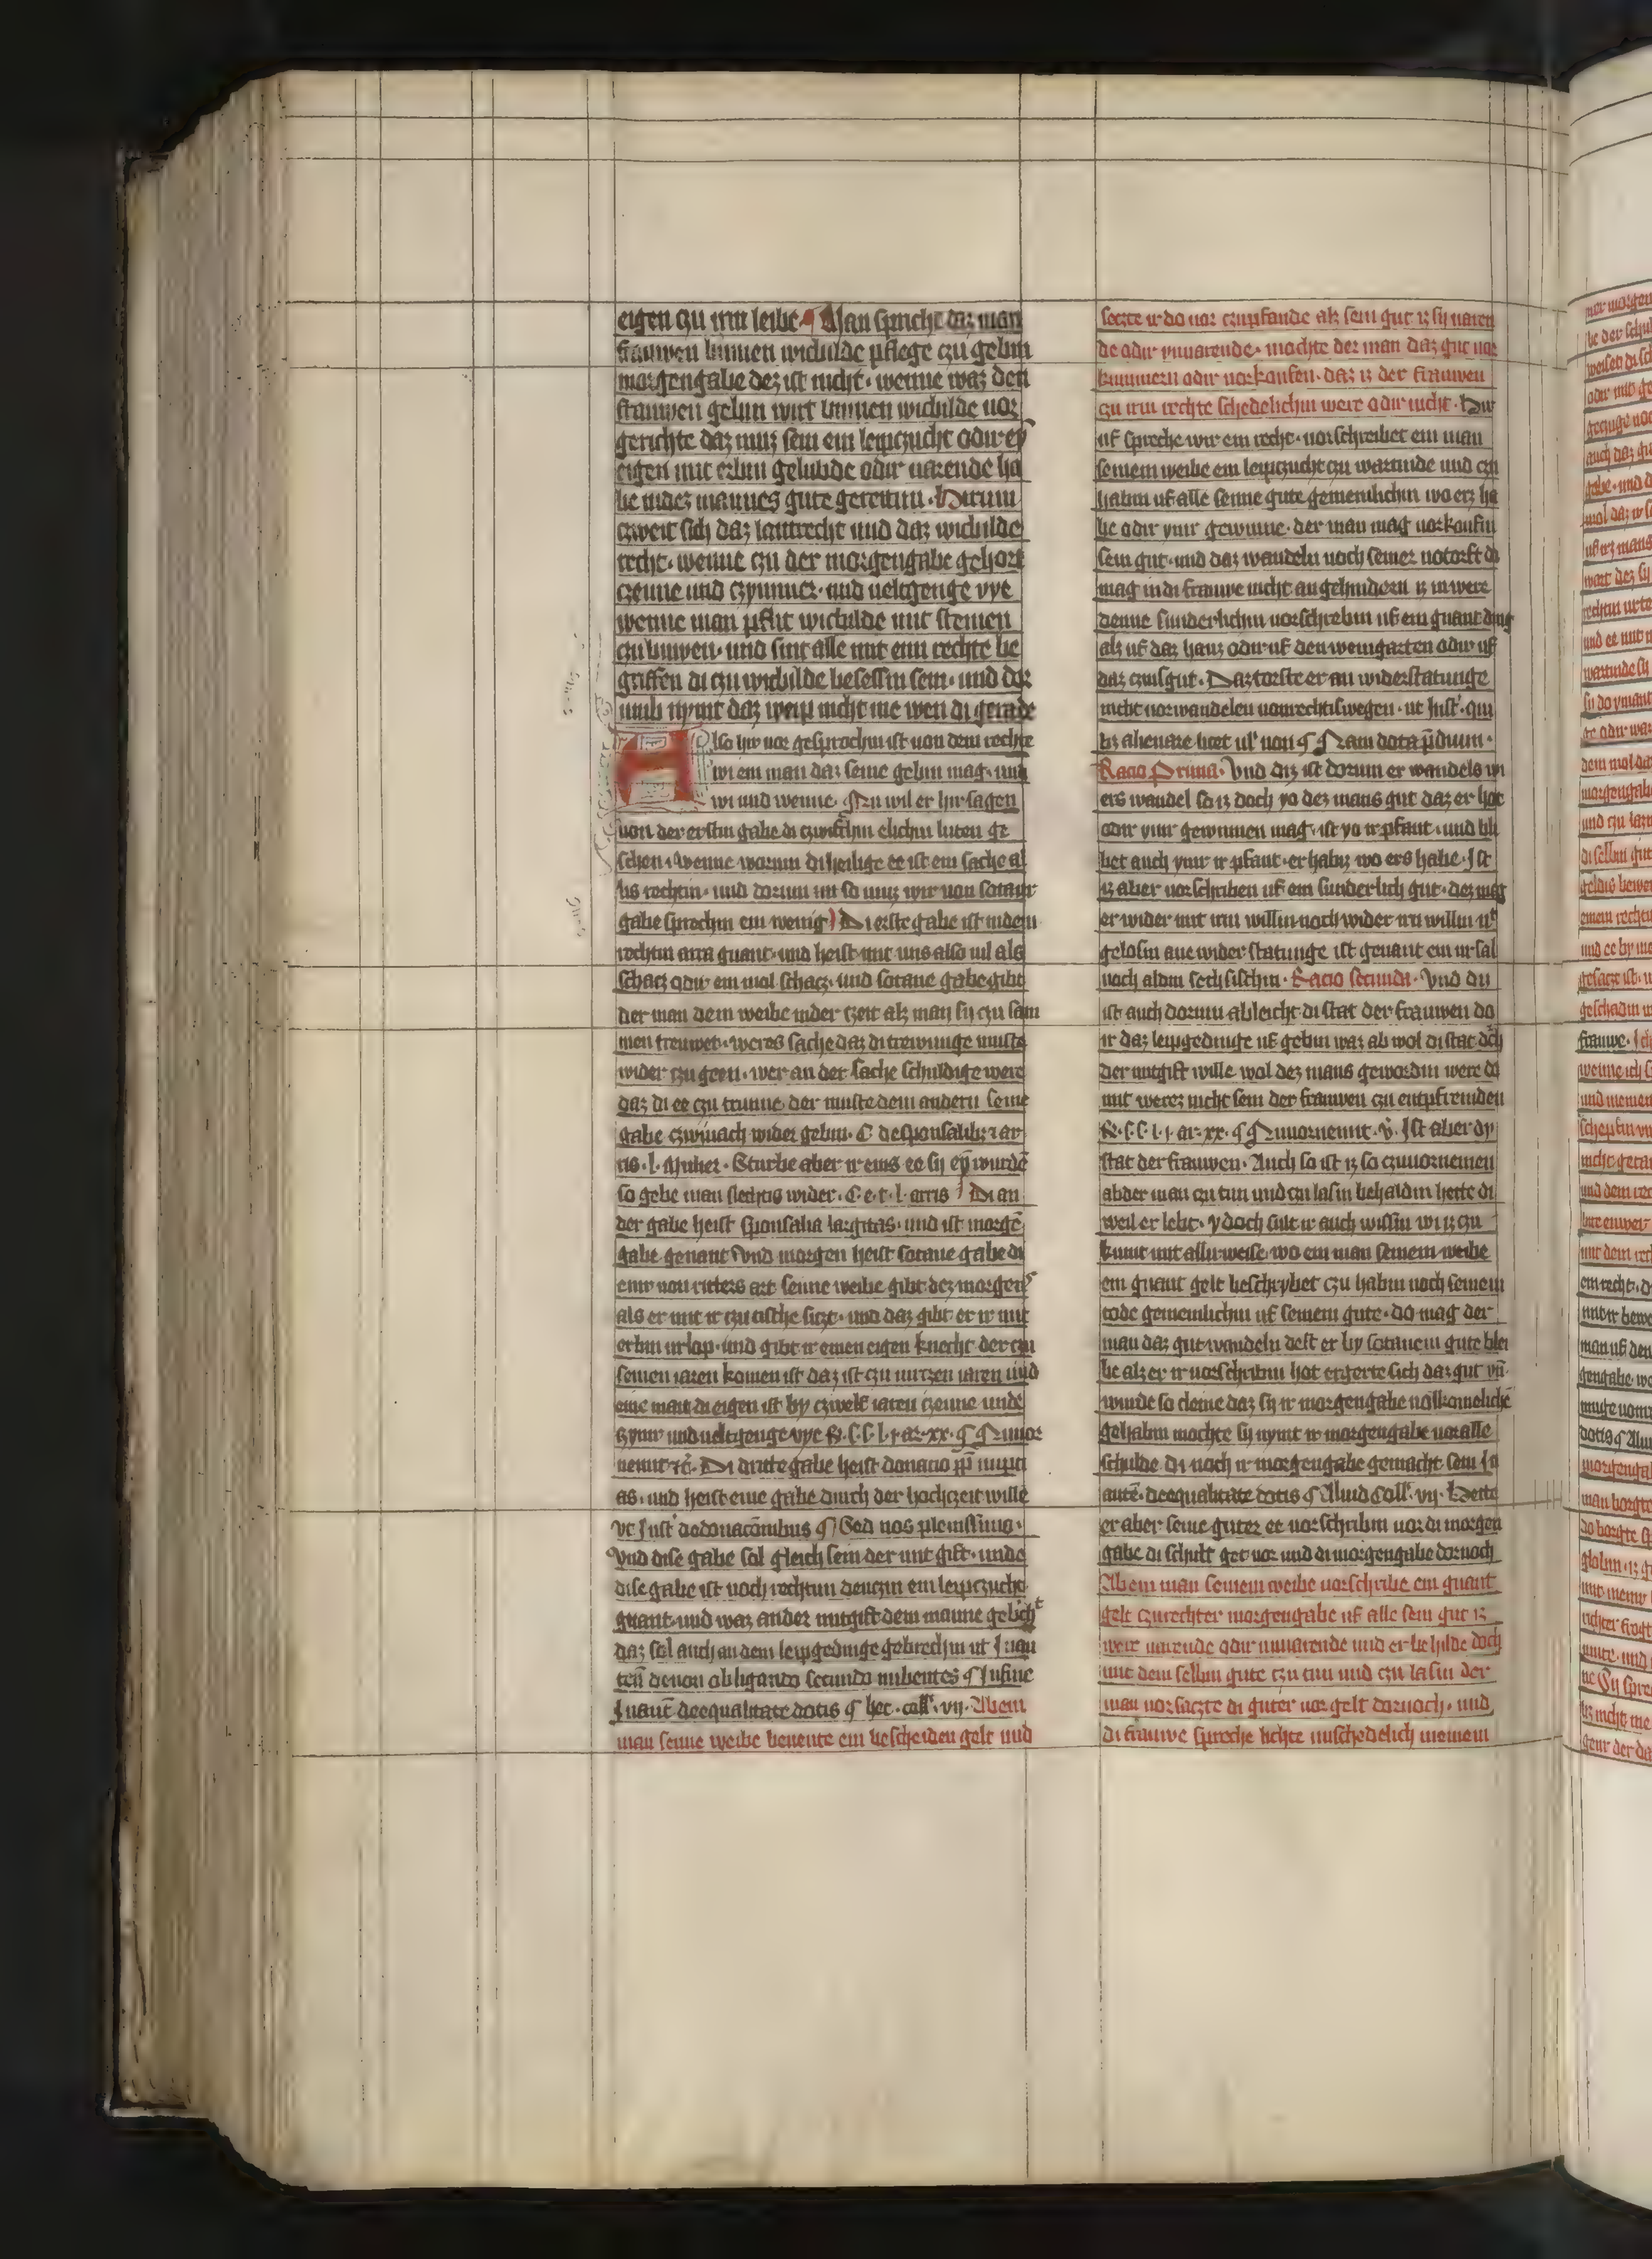 eigen czu irm leibe. ¶ Man spricht daz man
frauwen binnen wichilde pflege czu gebin
morgengabe dez ist nicht. wenne waz den
frauwen gebin wirt binnen wichilde uor
gerichte daz muz sein ein leipczucht odir ey
eigen mit erbin gelubde odir uarende ha
be indez mannes gute gereitin. Hirum
czweit sich daz lantrecht und daz wichilde
recht. wenne czu der morgengabe gehort
czeune und czymmer. und ueltgenge vye
wenne man pflit wichilde mit steinen
czu buwen. und sint alle mit eim rechte be
griffen di czu wichilde besessin sein. und dor
umb nymt daz weip nicht me wen di gerade
Also hir uor gesprochin ist uon dem rechte
wi ein man daz seine gebin mag. und
wi und wenne. Nu wil er hir sagen
uon der erstin gabe di czwisschin elichin luten ge
schen. Wenne worum di heilige ee ist ein sache al
lis rechtin. und dorum im so muz wir uon sotanir
gabe sprechin ein wenig Di erste gabe ist indem
rechtin arra gnant. und heist mit uns also uil als
schacz odir ein mol schacz. und sotane gabe gibt
der man dem weibe inder czeit alz man sy czu sam
men treuwet. weres sache daz di trewunge muste
wider czu geen. wer an der sache schuldig were
daz di ee czu trunne. der muste dem andern seine
gabe czwiuach wider gebin. C desponsalib; 7 ar
ris. l. Mulier. Sturbe aber ir eins ee sy ey wurde
so gebe man slechtis wider. C. e. t. l. arris Di an
der gabe heist sponsalia largitas. und ist morge
gabe genant Und morgen heist sotane gabe di
einr uon ritters art seine weibe gibt dez morgens
als er mit ir czu tische siczt. und daz gibt er ir mit
erbin urlop. und gibt ir einen eigen knecht der czu
seinen iaren komen ist daz ist czu nutzen iaren und
eine mait di eigen ist by czwelf iaren czeune unde
czymr und ueltgenge vye R. S. S. l. i. ar. xx. ¶ Nunor
nemit 7c. Di dritte gabe heist donacio pp nupci
as. und heist eine gabe durch der hochczeit wille
vt Inst dedonacionibus ¶ Sed nos plenissime.
Und dise gabe sal gleich sein der mit gift. unde
dise gabe ist noch rechtim deuczin ein leipczucht
gnant. und waz ander mitgift dem manne gebricht
daz sol auch an dem leipgedinge gebrechin ut I uau
ten denon obligando secundo nubentes ¶ Infine
I nauten deequalitate dotis ¶ hec. coll. vij. Abein
man seine weibe benente ein bescheiden gelt und
seczte ir do uor czupfande alz sein gut iz sy uaren
de odir unuarende. mochte der man daz gut uor
kummern odir uorkoufen. daz iz der frauwen
czu irm rechte schedelichin were odir nicht. Hir
uf spreche wir ein recht. uorschreibet ein man
seinem weibe ein leipczucht czu wartinde und czu
habin uf alle seine gute gemeinlichin wo erz ha
be odir ymir gewinne. der man mag uorkoufin
sein gut. und daz wandeln noch seiner notorft do
mag in di frauwe nicht an gehindern iz in were
denne sunderlichin uorschrebin uf ein gnant ding
alz uf daz hauz odir uf den weingarten odir uf
daz czinsgut. Daz torfte er an widerstatunge
nicht uorwandelen uonrechtiswegen. ut Inst. qui
bz alienare licet ul' non ¶ Nam dota predium.
Racio Prima. Und diz ist dorum er wandels wi
ers wandel so iz doch yo dez mans gut daz er hot
odir ymr gewinnen mag. ist yo ir pfant. und bli
bet auch ymir ir pfant. er habiz wo ers habe. Ist
iz aber uorschriben uf ein sunderlich gut. dez mag
er wider mit irm willin noch wider irn willin us
gelosin ane wider statunge ist genant ein ursal
noch aldim sechsischin. Racio secunda. Und diz
ist auch dorum ab leicht di stat der frauwen do
ir daz leipgedinge uf gebin waz ab wol di stat dch
der mitgift wille wol dez mans gewordin were do
mit werez nicht sein der frauwen czu entpfremden
R. S. S. l. i. ar. xx. ¶ Nunornemit. v. Ist aber dy
stat der frauwen. Auch so ist iz so czuuornemen
ab der man czu tun und czu lasin behaldin hette di
weil er lebt. ydoch sult ir auch wissin wi iz czu
kumt mit allir weise. wo ein man seinem weibe
ein gnant gelt beschrybet czu habin noch seinem
tode gemeinlichin uf seinem gute. do mag der
man daz gut wandeln dest er by sotanem gute blei
be alz er ir uorschribin hot ergerte sich daz gut vn
wurde so cleine daz sy ir morgengabe uolkomeliche
gehabin mochte sy nymt ir morgengabe uor alle
schulde di noch ir morgengabe gemacht sein In
auten. deequalitate dotis ¶ Aliud Coll. vij. Hette
er aber seine guter ee uorschribin uor di morgen
gabe di schult get uor und di morgengabe dornoch
Abein man seinem weibe uorschribe ein gnant
gelt czurechter morgengabe uf alle sein gut iz
were uarende odir unuarende und er behilde doch
mit dem selbin gute czu tun und czu lasin der
man uorsaczte di guter uor gelt dornoch. und
di frauwe spreche lichte unschedelich meinem